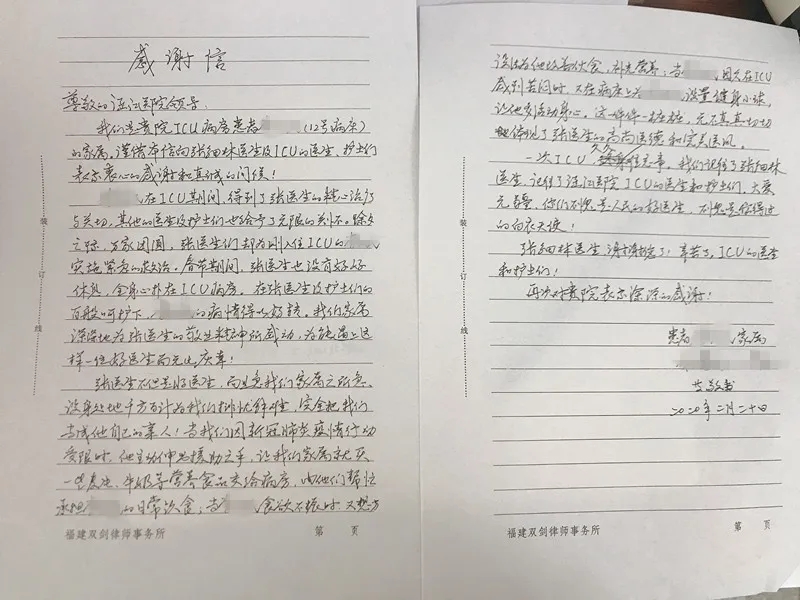 感谢信
尊敬的连江医院领导:
我们是贵院ICU病房患者(12号病床)
的家属。谨借本信向张细林医生及ICU的医生、护士们
表示衷心的感谢和真诚的问候!
在ICU期间,得到了张医生的精心治疗
与关切,其他的医生及护士们也给予了无限的关怀。除夕
之际,万家团圆,张医生们却为刚入住ICU的
实施紧急的救治。春节期间,张医生也没有好好
休息,全身心扑在ICU病房。在张医生及护士们的
百般呵护下,的病情得以好转。我们家属
深深地为张医生的敬业精神所感动,为能遇上这
样一位好医生而无比庆幸!
张医生不但是好医生,而且急我们家属之所急,
设身处地千方百计为我们排忧解难,完全把我们
当成他自己的亲人!当我们因新冠肺炎疫情行动
受限时,他主动伸出援助之手,让我们家属就买
一些、牛奶等营养食品交给病房,由他们帮忙
承担的日常饮食;当食欲不振时,又想方
福建双剑律师事务所 第 页
设法为他改善伙食,补充营养;当因久在ICU
感到苦闷时,又在病床上为设置健身小球,
让他多活动身心。这一件件一桩桩,无不真真切切
地体现了张医生的高尚医德和完美医风。
一次ICU,久久往事。我们记住了张细林
医生,记住了连江医院ICU的医生和护士们,大爱
无疆,你们不愧是人民的好医生,不愧是称得上
的白衣天使!
张细林医生,谢谢您了!辛苦了,ICU的医生
和护士们!
再次对贵院表示深深的感谢!
患者家属
敬书
二〇二〇年二月二十日
装
订
线
装
订
线
第 页
福建双剑律师事务所